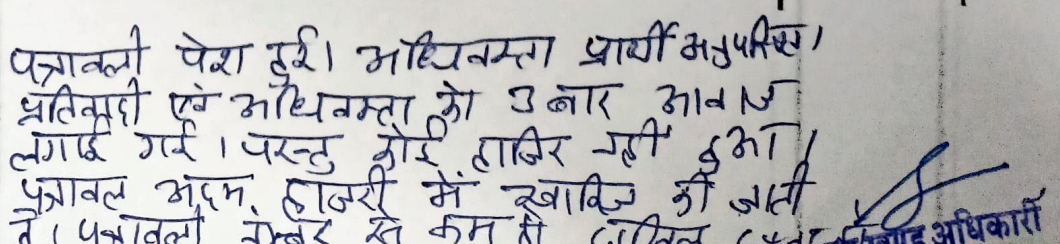 पत्रावली पेश हुई। अधिवक्ता प्रार्थी अनुपस्थित।
प्रतिवादी एवं अधिवक्ता को 3 बार आवाज
लगाई गई। परन्तु कोई हाजिर नहीं हुआ।
पत्रावल अदम हाजरी में खारिज की जाती
है। पत्रावली नम्बर से कम हो दाखिल
अधिकारी